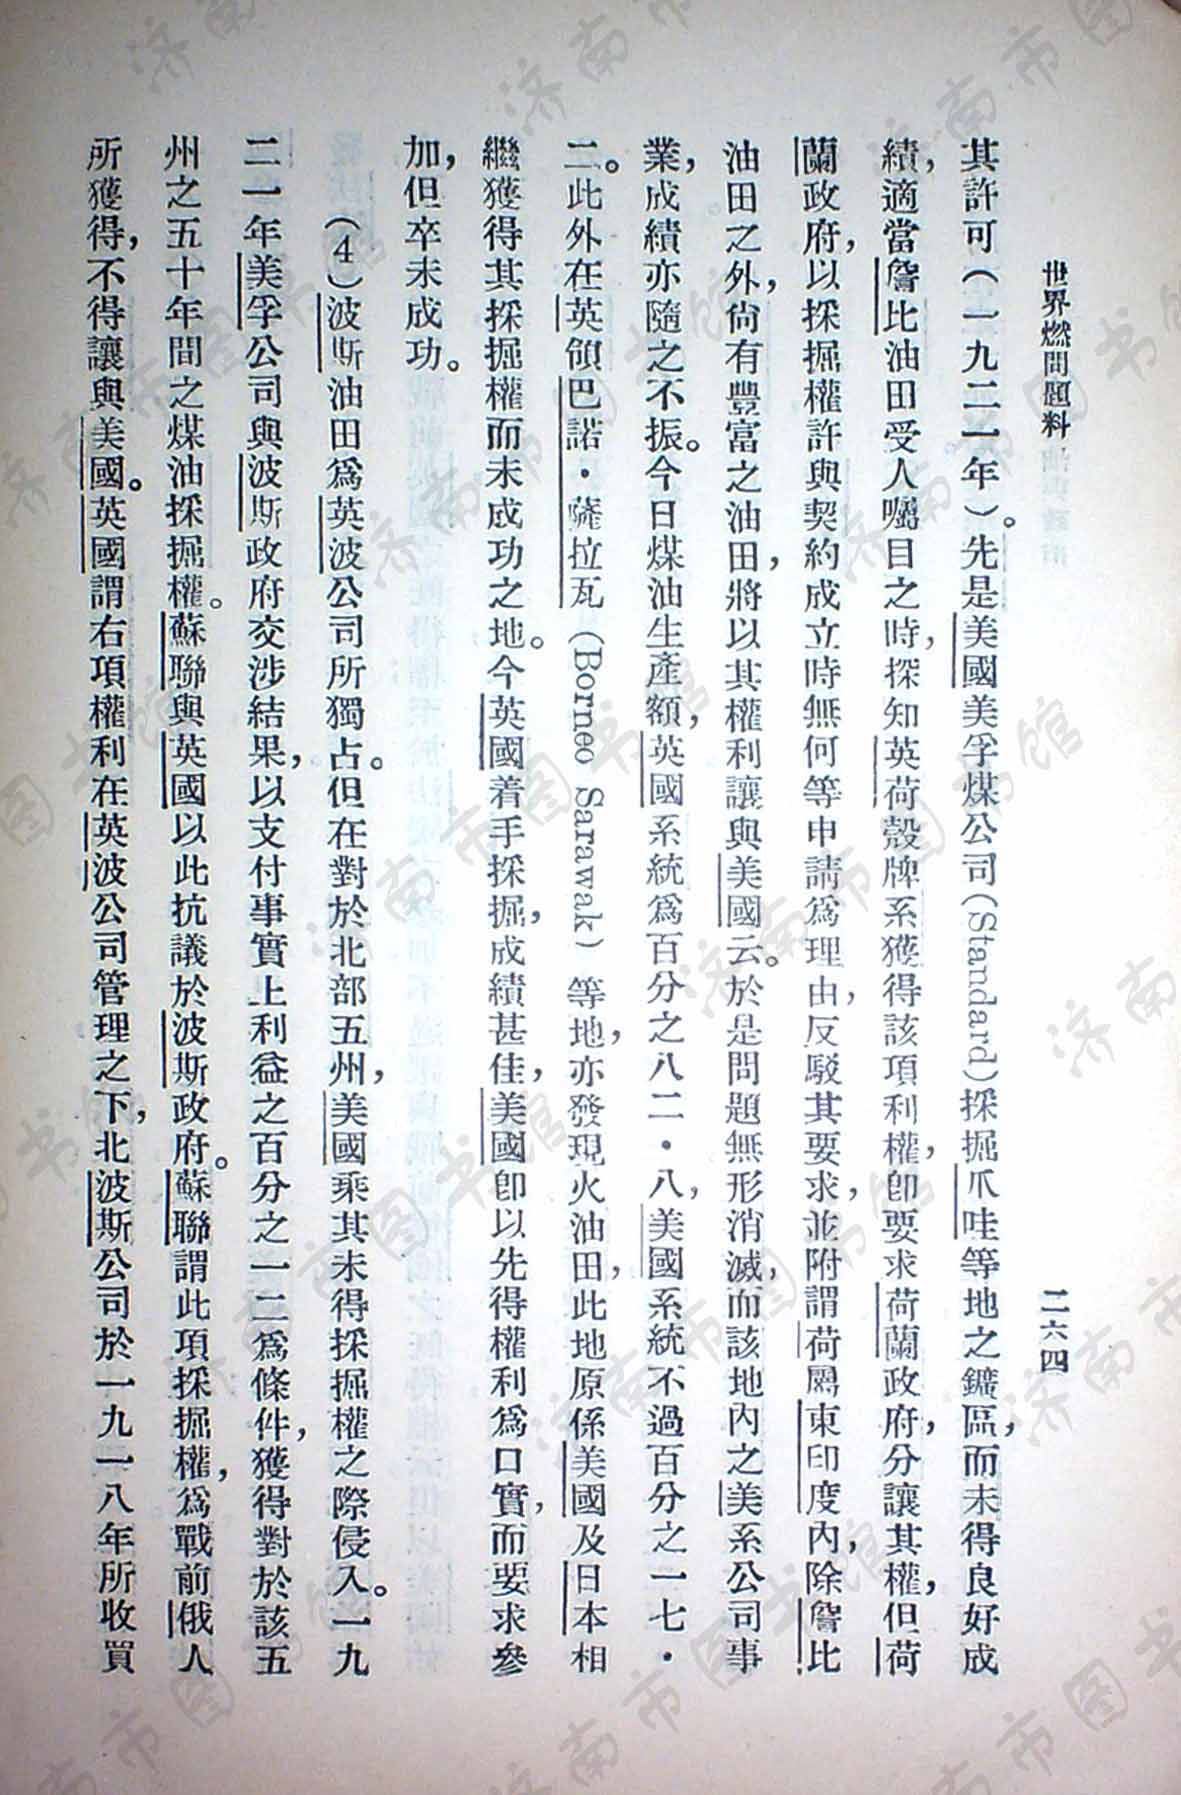 世界燃問題料
二六四
其許可（一九二一年）。先是美國美孚煤公司(Standard)採掘爪哇等地之鑛區，而未得良好成
績，適當詹比油田受人囑目之時，探知英荷殼牌系獲得該項利權，卽要求荷蘭政府，分讓其權，但荷
蘭政府，以採掘權許與契約成立時無何等申請爲理由，反駁其要求，並附謂荷屬東印度內，除詹比
油田之外，尙有豐富之油田，將以其權利讓與美國云。於是問題無形消滅，而該地內之美系公司事
業，成績亦隨之不振。今日煤油生產額，英國系統爲百分之八二·八，美國系統不過百分之一七·
二。此外在英領巴諾·薩拉瓦（Borneo Sarawak）等地，亦發現火油田，此地原係美國及日本相
繼獲得其採掘權而未成功之地。今英國着手採掘，成績甚佳，美國卽以先得權利爲口實，而要求參
加，但卒未成功。
（4）波斯油田爲英波公司所獨占。但在對於北部五州，美國乘其未得採掘權之際侵入。一九
二一年美孚公司與波斯政府交涉結果，以支付事實上利益之百分之一二爲條件，獲得對於該五
州之五十年間之煤油採掘權。蘇聯與英國以此抗議於波斯政府。蘇聯謂此項採掘權，爲戰前俄人
所獲得，不得讓與美國。英國謂右項權利在英波公司管理之下，北波斯公司於一九一八年所收買
济南市图书馆